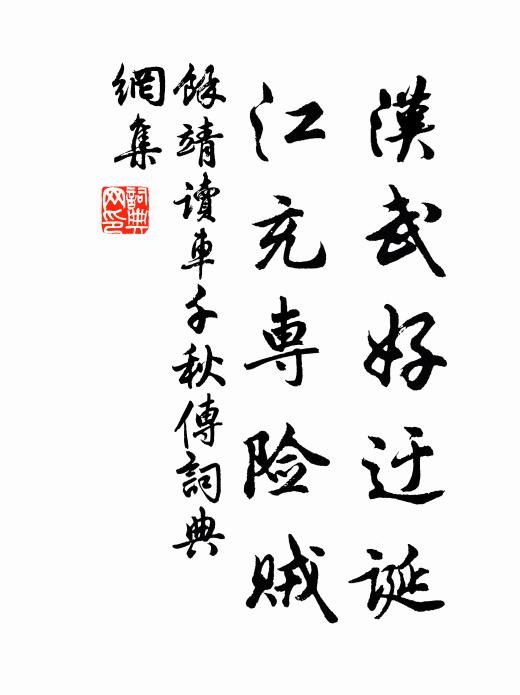 漢武好迂誕
江充専険賊
餘靖讀車千秋傳詞典
網集
詞典網印